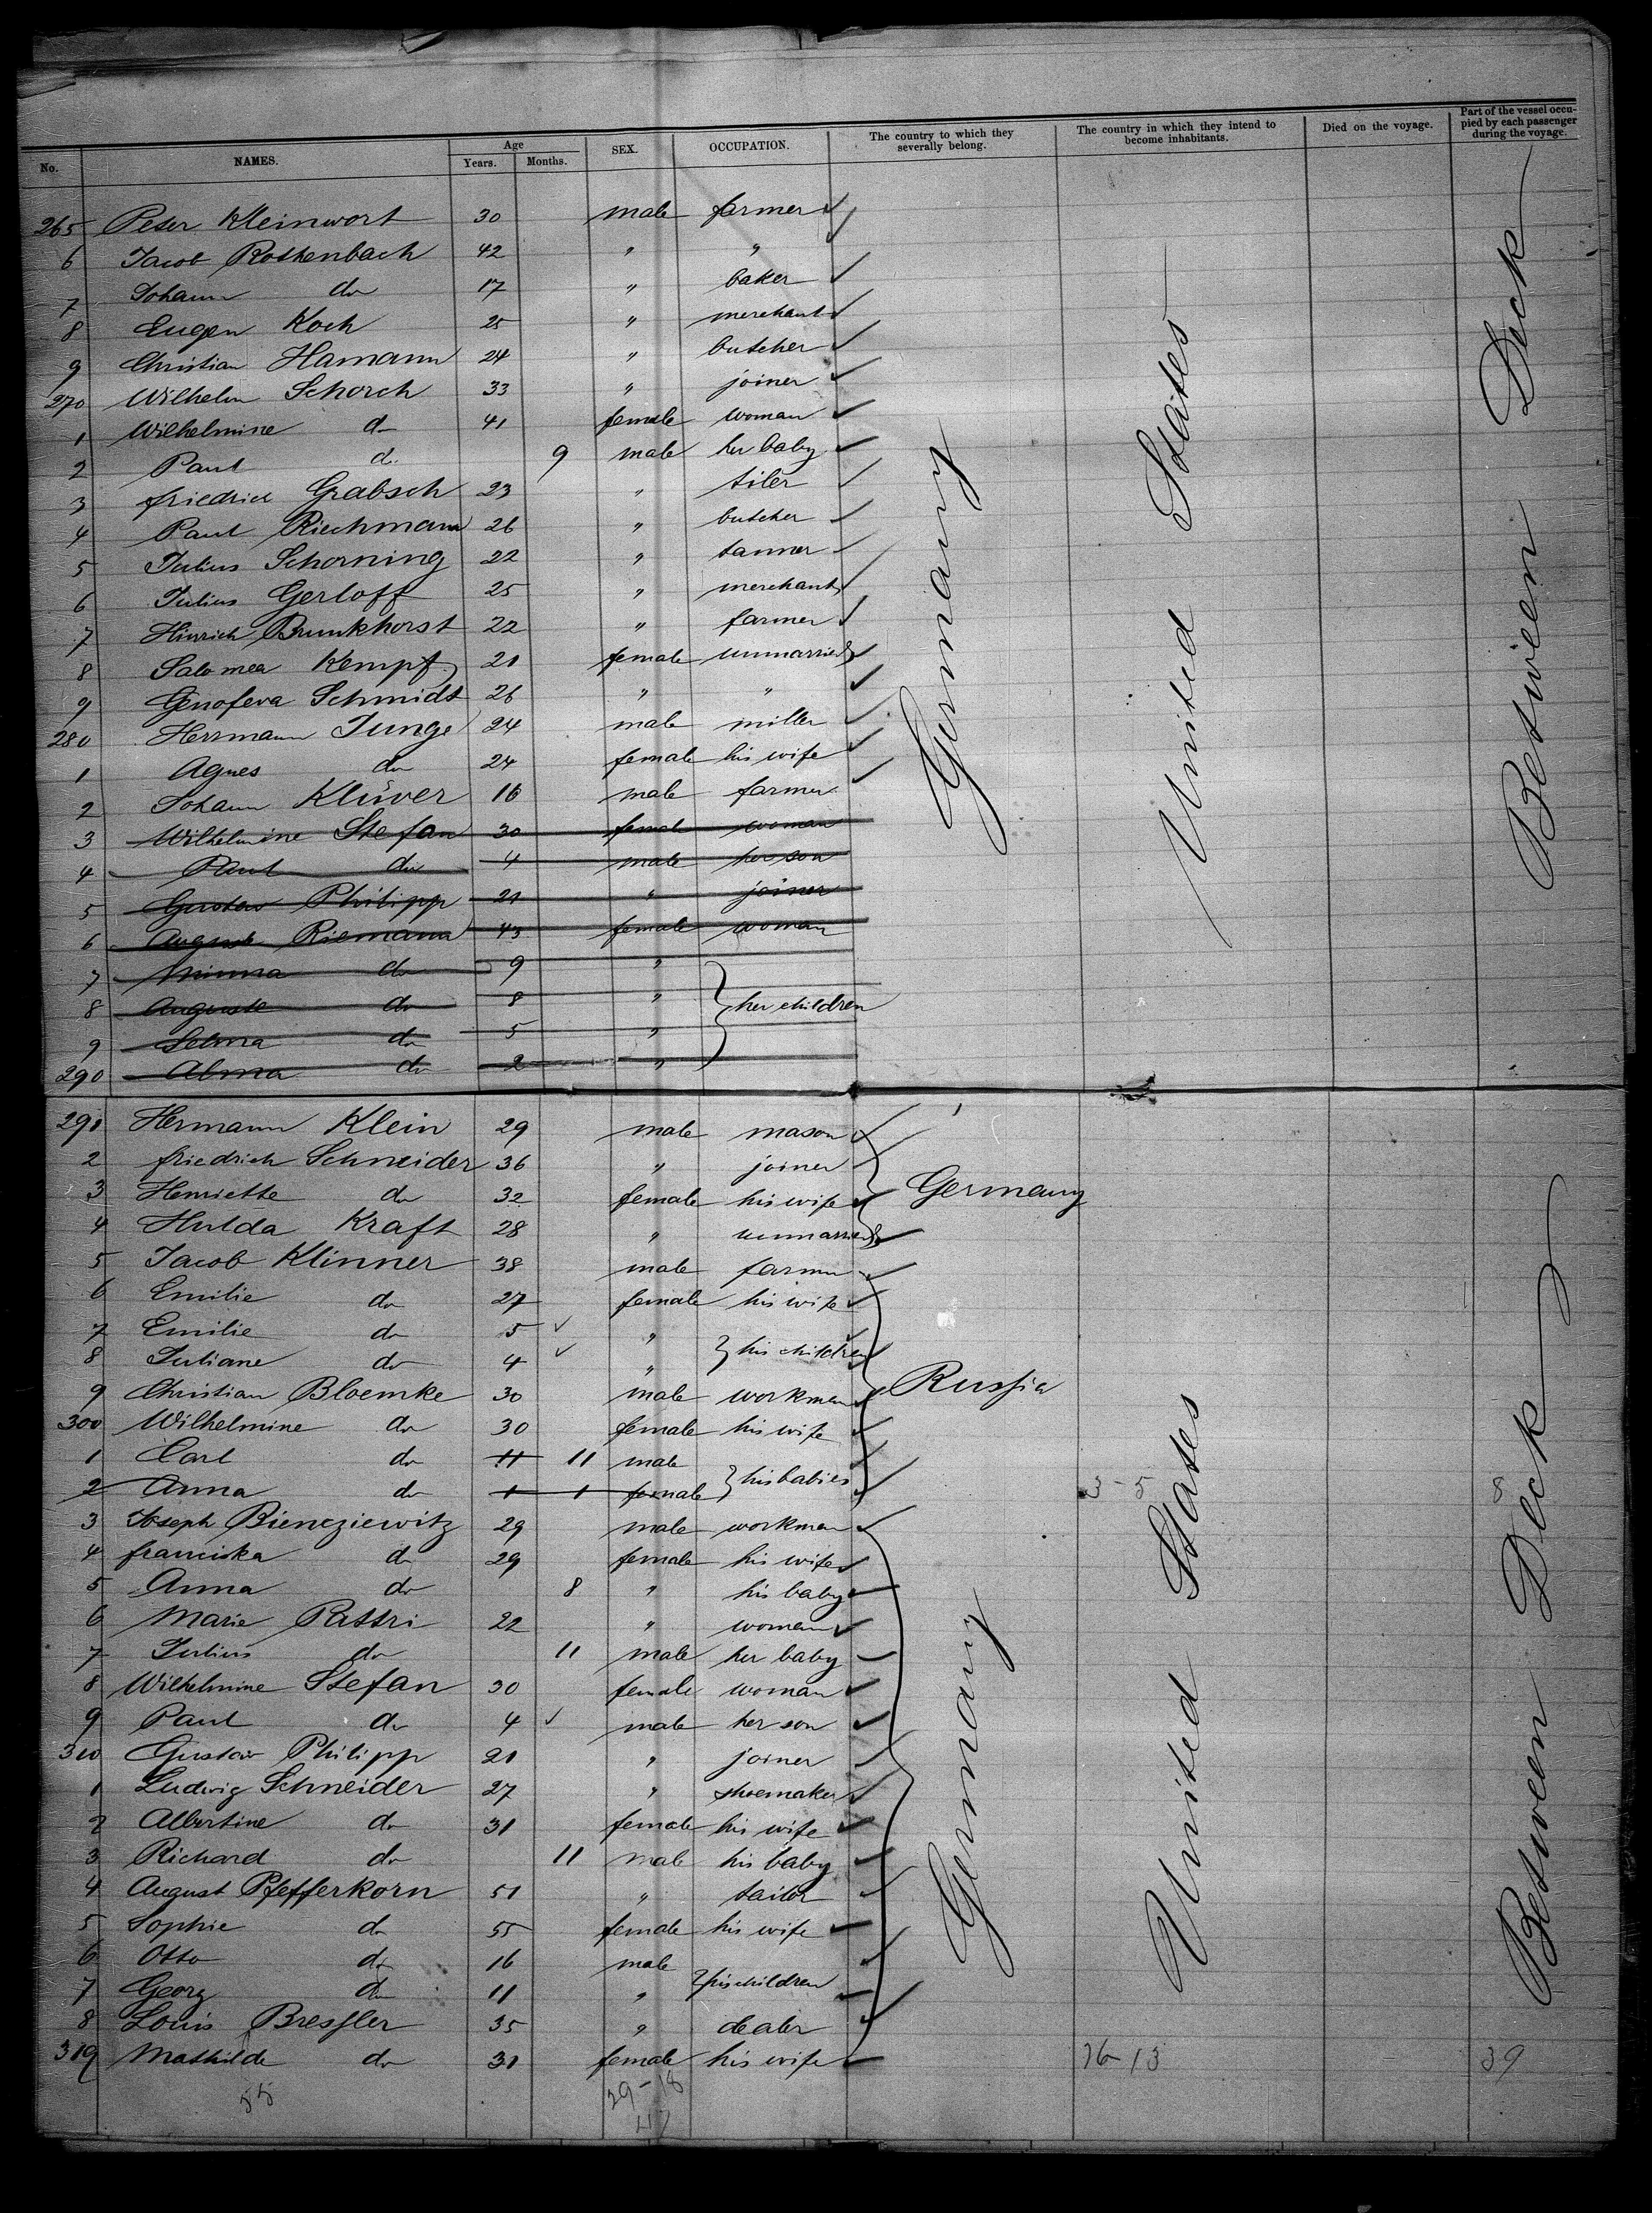 No. NAMES. Age Years. Months. SEX. OCCUPATION. The country to which they severally belong. The country in which they intend to become inhabitants. Died on the voyage. Part of the vessel occupied by each passenger during the voyage.
265 Peter Kleinwort 30 male farmer
6 Jacob Rothenbach 42 " "
7 Johann do 17 " baker
8 Eugen Koch 25 " merchant
9 Christian Hamann 24 " butcher
270 Wilhelm Schorch 33 " joiner
1 Wilhelmine do 41 female woman
2 Paul do 9 male her baby
3 friedrich Grabsch 23 " tiler
4 Paul Riechmann 26 " butcher
5 Julius Schorning 22 " tanner
6 Julius Gerloff 25 " merchant
7 Hinrich Brunkhorst 22 " farmer
8 Salomea Kempf 21 female unmarried
9 Genofeva Schmidt 26 " "
280 Herrmann Junge 24 male miller
1 Agnes do 24 female his wife
2 Johann Klüver 16 male farmer
3 Wilhelmine Stefan 30 female woman
4 Paul do 4 male her son
5 Gustav Philipp 21 " joiner
6 August Riemann 43 female woman
7 Minna do 9 "
8 Auguste do 8 " her children
9 Selma do 5 "
290 Alma do 2 "
Germany
United States
Between Deck
291 Hermann Klein 29 male mason
2 friedrich Schneider 36 " joiner
3 Henriette do 32 female his wife Germany
4 Hulda Kraft 28 " unmarried
5 Jacob Klinner 38 male farmer
6 Emilie do 27 female his wife
7 Emilie do 5 "
8 Juliane do 4 " his children
9 Christian Bloemke 30 male workman Russia
300 Wilhelmine do 30 female his wife
1 Carl do 11 11 male
2 Anna do 1 1 female his babies 3-5 8
3 Joseph Bieneziewitz 29 male workman
4 franciska do 29 female his wife
5 Anna do 8 " his baby
6 Marie Pattri 22 " woman
7 Julius do 11 male her baby
8 Wilhelmine Stefan 30 female woman
9 Paul do 4 male her son
310 Gustav Philipp 21 " joiner
1 Ludwig Schneider 27 " shoemaker
2 Albertine do 31 female his wife
3 Richard do 11 male his baby
4 August Pfefferkorn 51 " tailor
5 Sophie do 55 female his wife
6 Otto do 16 male
7 Georg do 11 " his children
8 Louis Bressler 35 " dealer
319 Mathilde do 31 female his wife 26-13 39
Germany
United States
Between Deck
55 29-18
47